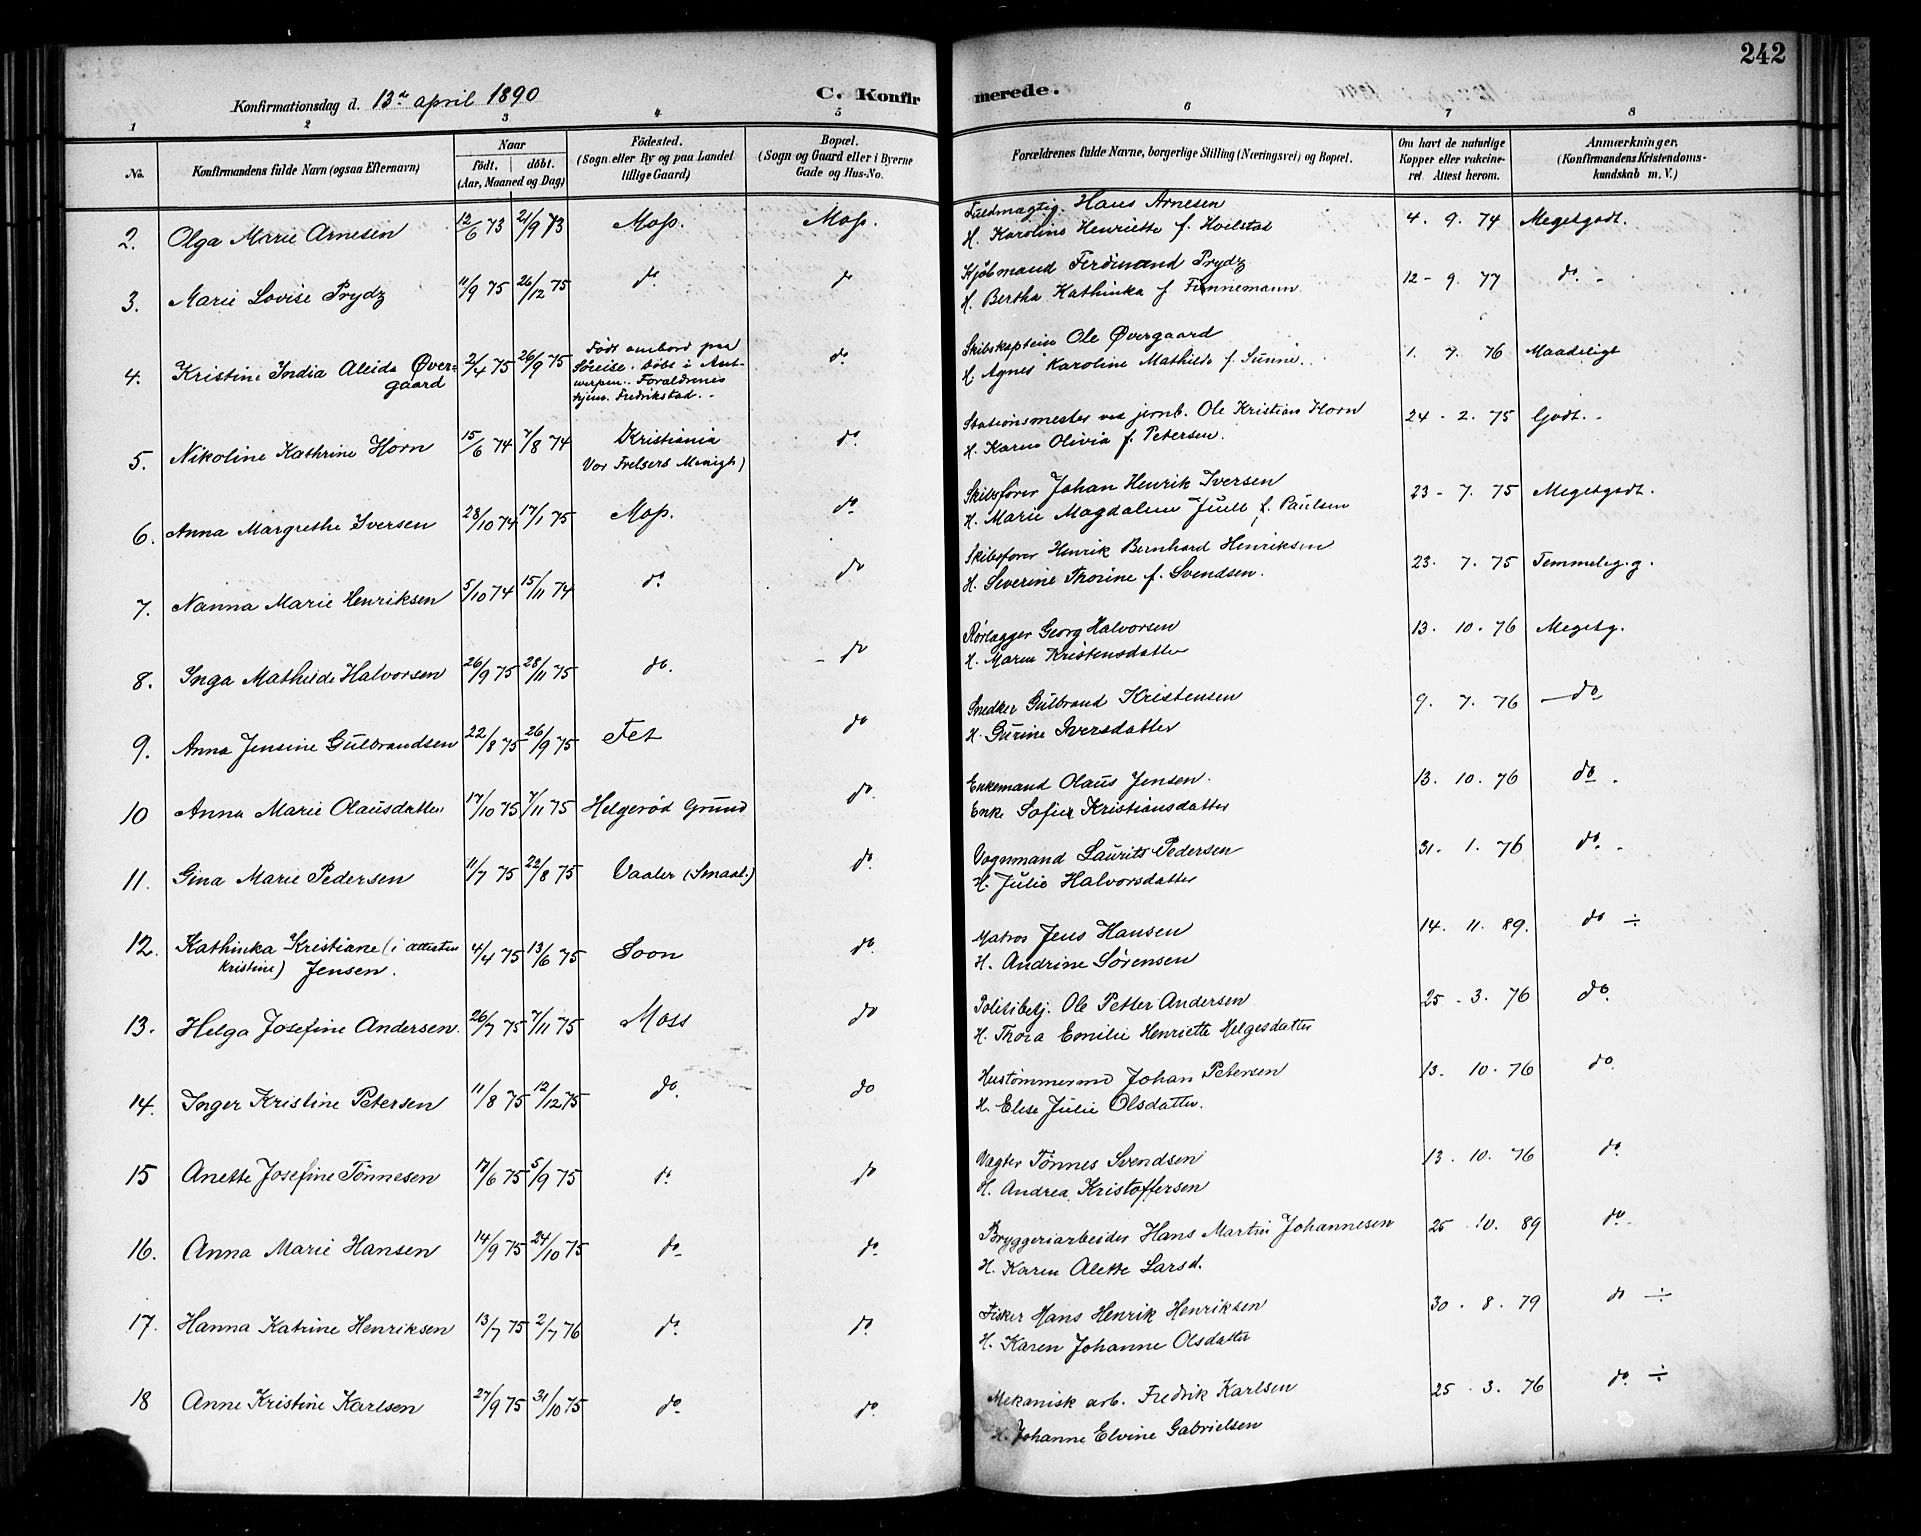 242
Konfirmationsdag d. 13de april 1890 C. Konfirmerede.
1 2 3 4 5 6 7 8
No. Konfirmandens fulde Navn (ogsaa Efternavn) Naar født. døbt. (Aar, Maaned og Dag) Fødested. (Sogn eller By og paa Landet tillige Gaard) Bopæl. (Sogn og Gaard eller i Byerne Gade og Hus-No. Forældrenes fulde Navne, borgerlige Stilling (Næringsvei) og Bopæl. Om havt de naturlige Kopper eller vakcineret. Attest herom. Anmærkninger. (Konfirmandens Kristendomskundskab m. V.)
2. Olga Marie Arnesen 12/6 73 21/9 73 Moss. Moss. Fuldmægtig Hans Arnesen 4. 9. 74 Megetgodt.
H. Karoline Henriette f. Hvilstad
3. Marie Lovise Prydz 11/9 75 26/12 75 do do Kjøbmand Ferdinand Prydz 12 - 9. 77 do.
H. Bertha Kathinka f. Finnemann
4. Kristine India Aleida Øvergaard 2/4 75 26/9 75 Født ombord paa Søreise. Døbt i Antwerpen. Forældrenes hjem. Fredrikstad. do. Skibskaptein Ole Øvergaard 1. 7. 76 Maadeligt
H. Agnes Karoline Mathilde f. Sunne.
5. Nikoline Kathrine Horn 15/6 74 7/8 74 Kristiania Vor Frelsers Menigh) do. Stationsmester ved jernb. Ole Kristian Horn 24 - 2. 75 Godt.
H. Karen Olivia f. Petersen.
6. Anna Margrethe Iversen 28/10 74 17/1 75 Moss. do Skibsfører Johan Henrik Iversen 23 - 7. 75 Megetgodt.
H. Marie Magdalene Juell f. Paulsen
7. Nanna Marie Henriksen 5/10 74 15/11 74 do do Skibsfører Henrik Bernhard Henriksen 23. 7. 75 Temmelig.g.
H. Severine Thorine f. Svendsen.
8. Inga Mathilde Halvorsen 26/9 75 28/11 75 do. do Rørlægger Georg Halvorsen 13. 10. 76 Megetg.
H. Maren Kristensdatter
9. Anna Jensine Gulbrandsen 22/8 75 26/9 75 Fet do Snedker Gulbrand Kristensen 9. 7. 76 do
H. Gurine Iversdatter
10 Anna Marie Olausdatter 17/10 75 7/11 75 Helgerød Grund do. Enkemand Olaus Jensen. 13. 10. 76 do.
Enke Sofie Kristiansdatter
11. Gina Marie Pedersen 11/7 75 22/8 75 Vaaler (Smaal.) do. Vognmand Laurits Pedersen 31. 1. 76 do.
H. Julie Halvorsdatter
12. Kathinka Kristiane (i attesten Kristine) Jensen. 4/4 75 13/6 75 Soon do. Matros Jens Hansen 14. 11. 89. do ÷
H. Andrine Sørensen
13. Helga Josefine Andersen. 26/7 75 7/11 75 Moss do Politibetj. Ole Petter Andersen 25 - 3. 76 do.
H. Thora Emilie Henriette Helgesdatter
14. Inger Kristine Petersen 11/8 75 12/12 75 do. do Hustømmermd Johan Petersen 13. 10. 76 do.
H. Elise Julie Olsdatter.
15 Anette Josefine Tønnesen 17/6 75 5/9 75 do do Vægter Tønnes Svendsen 13. 10. 76 do.
H. Andrea Kristoffersen
16. Anna Marie Hansen 14/9 75 24/10 75 do do. Bryggeriarbeider Hans Martin Johannesen 25 . 10. 89 do.
H. Karen Alette Larsd.
17. Hanna Katrine Henriksen 13/7 75 2/7 76 do. do. Fisker Hans Henrik Henriksen 30 . 8. 79 do ÷
H. Karen Johanne Olsdatter
18 Anne Kristine Karlsen 27/9 75 31/10 75 do. do. Mekanisk arb. Fredrik Karlsen 25 . 3. 76 do. ÷
H. Johanne Elvine Gabrielsen